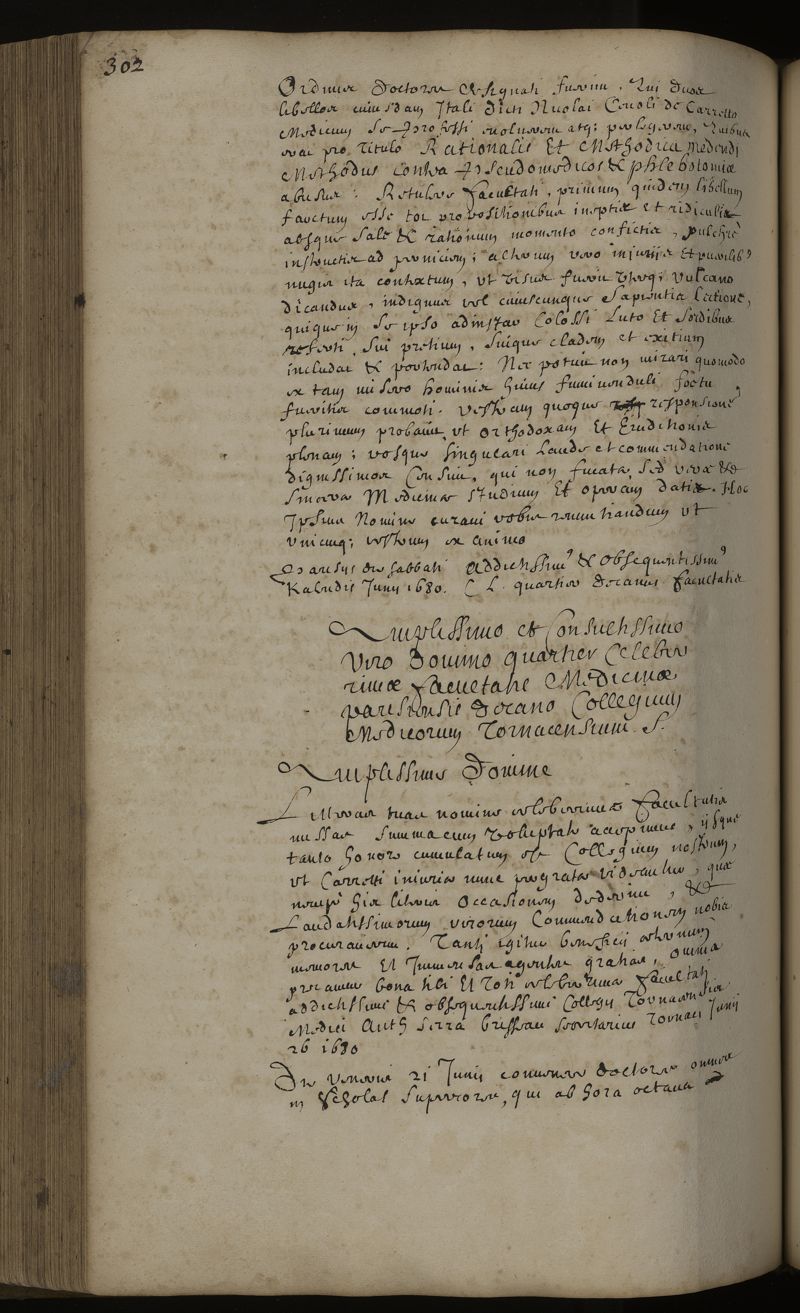 302
Ordinis Doctores designati fuerunt, Qui duos
libellos cuiusdam Itali dicti Nicolai Cevoli de Carretto
Medicum se professi evolverent atq; perlegerent, Quibus
erat pro Titulo Rationalis Et Methodica medendi
Methodus Contra Pseudomedicos & phlebotomiæ
abusus: Retulere facultati, primum quidem libellum
farctum esse tot propositionibus ineptis et ridiculis
absque sale & rationum momento confictis, pulchre
instructis ad perniciem; alterum vero injuriis Et puerilib9
nugis ita contextum, ut visus fuerit utq; Vulcano
dicandus, indignus vel cuiuscunque Sapientis lectione,
quique in se ipso adinstar Colossi Luto Et Sordibus
referti, sui pretium, suique cladem et exitium
includat & portendat: Nec potuit non mirari quomodo
ex tam misero hominis huius furibunduli fœtu
fueritis commoti. vestram quoque responsione
plurimum probavit, ut orthodoxam Et Eruditionis
plenam; vosque singulari Laude et commendatione
dignissimos Censuit, qui non fucatæ, sed veræ &
sinceræ Medicinæ studium Et operam datis. Hoc
Ipsius Nomine curavi vobis renuntiandum ut
unicuiq; vestrum ex animo
Parisiis die sabbati addictissim9 & obsequentissim9
Kalendis Junii 1680. C L. quartier decanus facultatis
Amplissimo et Consultissimo
Viro Domino quartier Celeber
rimæ facultatis Medicinæ
parisiensis decano Collegium
Medicorum Tornacensium S.
Amplissime Domine
Litteras tuas nomine celeberrimæ facultatis
missas summa cum voluptate accepimus, ijsque
tanto honore cumulatum est Collegium nostrum,
ut Carretti iniuriæ nunc pergratæ videantur, quæ
nempe his literis occasionem dederint, &
Laudatissimorum virorum Commendationem nobis
procuraverint. Tanti igitur beneficii æternum
memores Et Immensas agentes gratias, omnia
precamur bona tibi Et toti celeberrimæ facultati
addictissimi & obsequentissimi Collegii Tornacensis
Medici Secretarius Tornaci Junii
26 1680
Die Veneris 21 Junii convenere doctores omnes
in scholas superiores, qui ab hora octava